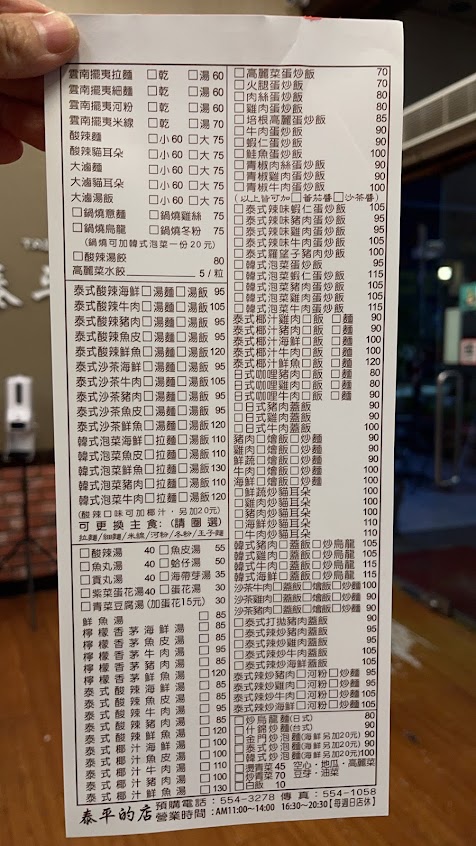 雲南擺夷拉麵 □乾 □湯 60
雲南擺夷細麵 □乾 □湯 60
雲南擺夷河粉 □乾 □湯 60
雲南擺夷米線 □乾 □湯 70
酸辣麵 □小 60 □大 75
酸辣貓耳朵 □小 60 □大 75
大滷麵 □小 60 □大 75
大滷貓耳朵 □小 60 □大 75
大滷湯飯 □小 60 □大 75
□鍋燒意麵 □鍋燒雞絲 75
□鍋燒烏龍 □鍋燒冬粉 75
(鍋燒可加韓式泡菜一份20元)
□酸辣湯餃 80
高麗菜水餃 5/粒
泰式酸辣海鮮□湯麵□湯飯 95
泰式酸辣牛肉□湯麵□湯飯 105
泰式酸辣豬肉□湯麵□湯飯 95
泰式酸辣魚皮□湯麵□湯飯 95
泰式酸辣鮮魚□湯麵□湯飯 120
泰式沙茶海鮮□湯麵□湯飯 95
泰式沙茶牛肉□湯麵□湯飯 105
泰式沙茶豬肉□湯麵□湯飯 95
泰式沙茶魚皮□湯麵□湯飯 95
泰式沙茶鮮魚□湯麵□湯飯 120
韓式泡菜海鮮□拉麵□湯飯 110
韓式泡菜魚皮□拉麵□湯飯 110
韓式泡菜鮮魚□拉麵□湯飯 130
韓式泡菜豬肉□拉麵□湯飯 110
韓式泡菜牛肉□拉麵□湯飯 120
(酸辣口味可加椰汁，另加20元)
可更換主食:(請圈選)
拉麵/細麵/米線/河粉/冬粉/王子麵
□酸辣湯 40 □魚皮湯 55
□魚丸湯 40 □蛤仔湯 50
□貢丸湯 40 □海帶芽湯 35
□紫菜蛋花湯 40 □蛋花湯 30
□青菜豆腐湯(加蛋花15元) 30
鮮魚湯 □ 85
檸檬香茅海鮮湯 □ 85
檸檬香茅魚皮湯 □ 85
檸檬香茅牛肉湯 □ 95
檸檬香茅豬肉湯 □ 85
檸檬香茅鮮魚湯 □ 120
泰式酸辣海鮮湯 □ 85
泰式酸辣魚皮湯 □ 85
泰式酸辣牛肉湯 □ 95
泰式酸辣豬肉湯 □ 85
泰式酸辣鮮魚湯 □ 120
泰式椰汁海鮮湯 □ 100
泰式椰汁魚皮湯 □ 100
泰式椰汁牛肉湯 □ 110
泰式椰汁豬肉湯 □ 100
泰式椰汁鮮魚湯 □ 130
□高麗菜蛋炒飯 70
□火腿蛋炒飯 70
□肉絲蛋炒飯 80
□雞肉蛋炒飯 80
□培根高麗蛋炒飯 85
□牛肉蛋炒飯 90
□蝦仁蛋炒飯 90
□鮭魚蛋炒飯 100
□青椒肉絲蛋炒飯 90
□青椒雞肉蛋炒飯 90
□青椒牛肉蛋炒飯 100
(以上皆可加□蕃茄醬□沙茶醬)
□泰式辣味蝦仁蛋炒飯 105
□泰式辣味雞肉蛋炒飯 95
□泰式辣味豬肉蛋炒飯 95
□泰式辣味牛肉蛋炒飯 105
□泰式羅望子豬肉炒飯 105
□韓式泡菜蛋炒飯 95
□韓式泡菜蝦仁蛋炒飯 115
□韓式泡菜豬肉蛋炒飯 105
□韓式泡菜雞肉蛋炒飯 105
□韓式泡菜牛肉蛋炒飯 115
泰式椰汁雞肉□飯 □麵 90
泰式椰汁豬肉□飯 □麵 90
泰式椰汁海鮮□飯 □麵 90
泰式椰汁牛肉□飯 □麵 100
泰式椰汁鮮魚□飯 □麵 120
日式咖哩豬肉□飯 □麵 80
日式咖哩雞肉□飯 □麵 80
日式咖哩牛肉□飯 □麵 90
□日式豬肉蓋飯 90
□日式雞肉蓋飯 90
□日式牛肉蓋飯 100
豬肉□燴飯□炒麵 90
雞肉□燴飯□炒麵 90
鮮蔬□燴飯□炒麵 90
牛肉□燴飯□炒麵 100
海鮮□燴飯□炒麵 100
□鮮蔬炒貓耳朵 100
□雞肉炒貓耳朵 100
□豬肉炒貓耳朵 100
□海鮮炒貓耳朵 110
□牛肉炒貓耳朵 110
韓式豬肉□蓋飯□炒烏龍 105
韓式雞肉□蓋飯□炒烏龍 105
韓式牛肉□蓋飯□炒烏龍 115
韓式海鮮□蓋飯□炒烏龍 115
沙茶牛肉□蓋飯□燴飯□炒麵 100
沙茶雞肉□蓋飯□燴飯□炒麵 90
沙茶豬肉□蓋飯□燴飯□炒麵 90
□泰式打拋豬肉蓋飯 95
□泰式辣炒豬肉蓋飯 95
□泰式辣炒雞肉蓋飯 95
□泰式辣炒牛肉蓋飯 105
□泰式辣炒海鮮蓋飯 105
泰式辣炒豬肉□河粉□炒麵 95
泰式辣炒雞肉□河粉□炒麵 95
泰式辣炒牛肉□河粉□炒麵 105
泰式辣炒海鮮□河粉□炒麵 105
□炒烏龍麵(日式) 80
□什錦炒麵(台式) 80
□金門炒泡麵(海鮮另加20元) 90
□泰式炒泡麵(海鮮另加20元) 90
□韓式炒泡麵(海鮮另加20元) 100
□燙青菜 45 空心・地瓜・高麗菜
□炒青菜 70 豆芽・油菜
□白飯 10
泰平的店
預購電話：554-3278 傳真：554-1058
營業時間：AM11:00～14:00 16:30～20:30【每週日店休】